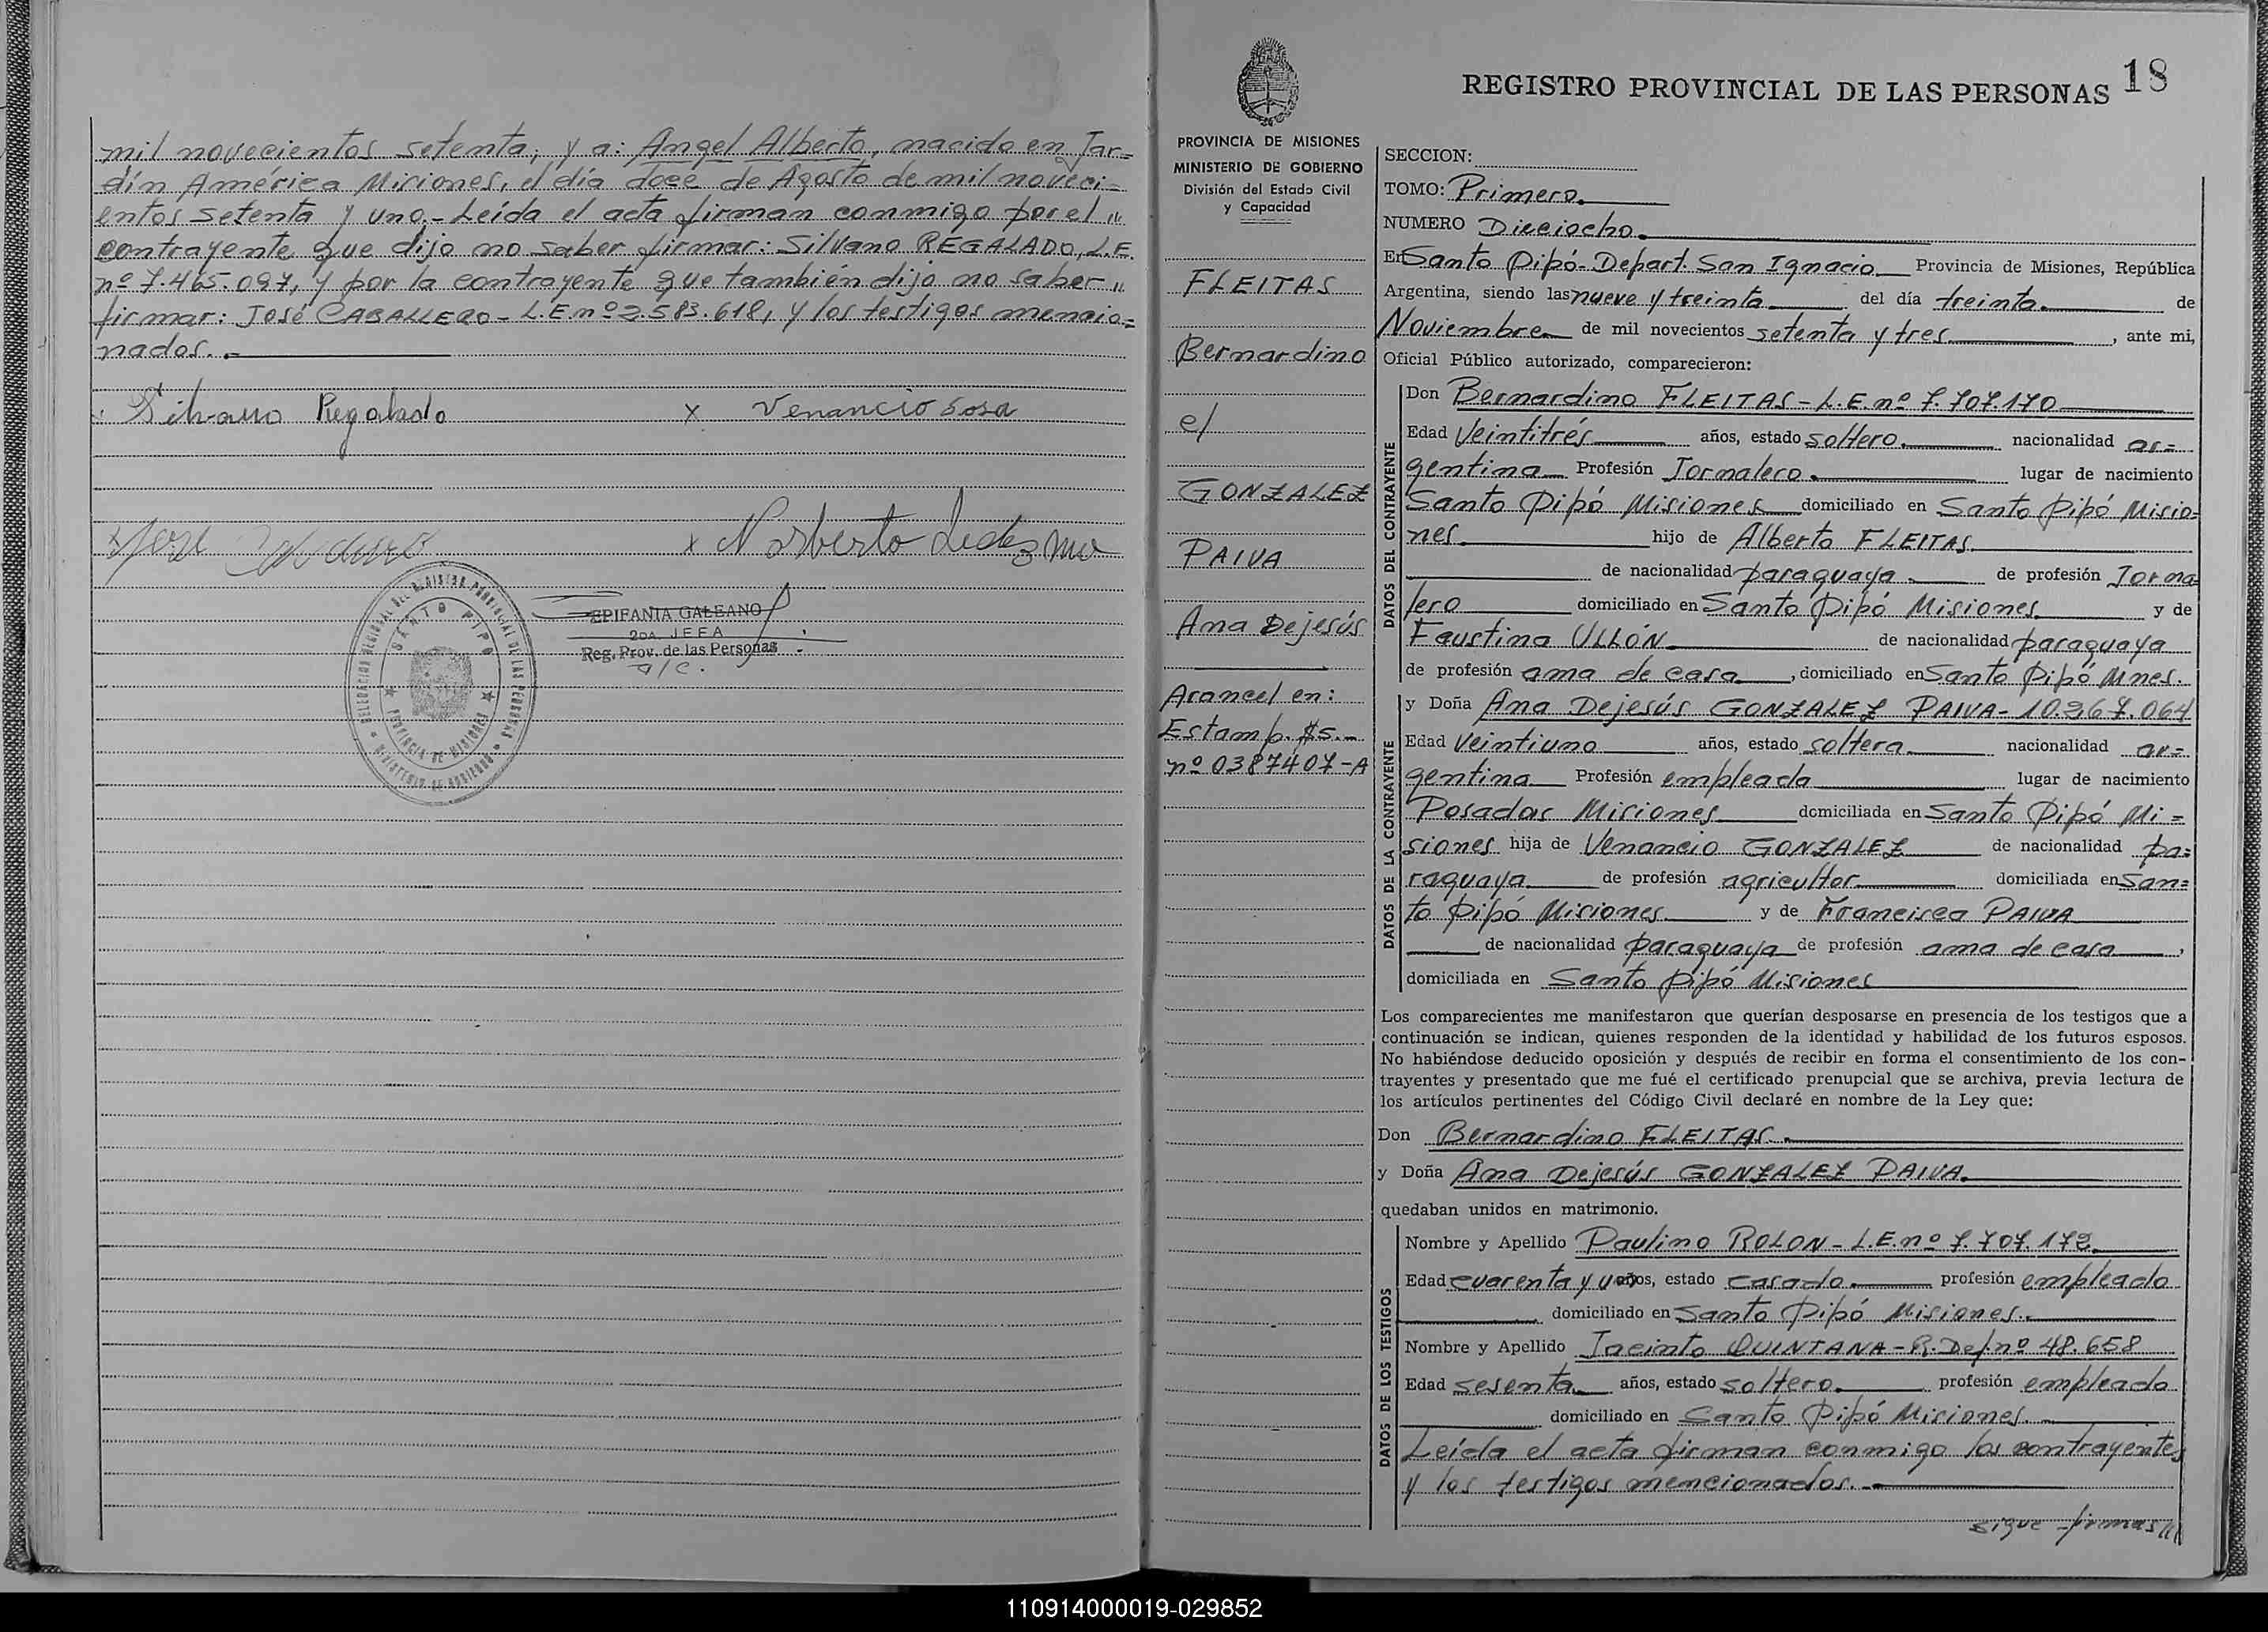 mil novecientos setenta, y a: Angel Alberto, nacido en Jar=
dín América Misiones, el día doce de Agosto de mil noveci=
entos setenta y uno.- Leída el acta firman conmigo por el "
contrayente que dijo no saber firmar: Silvano REGALADO, L.E.
nº 7.465.097, y por la contrayente que también dijo no saber "
firmar: José CABALLERO - L.E. nº 2.583.618, y los testigos mencio=
nados.-
Silvano Regalado x Venancio Sosa
x Jose x Norberto Ledezma
DELEGACION REGIONAL DEL REGISTRO PROVINCIAL DE LAS PERSONAS
SANTO PIPO
PROVINCIA DE MISIONES
MINISTERIO DE GOBIERNO
EPIFANIA GALEANO
2DA. JEFA
Reg. Prov. de las Personas
a/c.
PROVINCIA DE MISIONES
MINISTERIO DE GOBIERNO
División del Estado Civil
y Capacidad
FLEITAS
Bernardino
c/
GONZALEZ
PAIVA
Ana Dejesús
Arancel en:
Estamp. $5.-
nº 0387407-A
REGISTRO PROVINCIAL DE LAS PERSONAS 18
SECCION:
TOMO: Primero.
NUMERO Dieciocho.
En Santo Pipó- Depart. San Ignacio Provincia de Misiones, República
Argentina, siendo las nueve y treinta del día treinta. de
Noviembre de mil novecientos setenta y tres , ante mi,
Oficial Público autorizado, comparecieron:
DATOS DEL CONTRAYENTE
Don Bernardino FLEITAS - L.E. nº 7.707.170
Edad Veintitrés años, estado soltero. nacionalidad ar=
gentina Profesión Jornalero. lugar de nacimiento
Santo Pipó Misiones domiciliado en Santo Pipó Misio=
nes. hijo de Alberto FLEITAS
de nacionalidad paraguaya de profesión Jorna=
lero domiciliado en Santo Pipó Misiones. y de
Faustina ULLÓN de nacionalidad paraguaya
de profesión ama de casa , domiciliado en Santo Pipó Mnes.
DATOS DE LA CONTRAYENTE
y Doña Ana Dejesús GONZALEZ PAIVA- 10.267.064
Edad Veintiuno años, estado soltera nacionalidad ar=
gentina Profesión empleada lugar de nacimiento
Posadas Misiones domiciliada en Santo Pipó Mi=
siones hija de Venancio GONZALEZ de nacionalidad pa=
raguaya de profesión agricultor domiciliada en San=
to Pipó Misiones y de Francisca PAIVA
de nacionalidad paraguaya de profesión ama de casa ,
domiciliada en Santo Pipó Misiones
Los comparecientes me manifestaron que querían desposarse en presencia de los testigos que a
continuación se indican, quienes responden de la identidad y habilidad de los futuros esposos.
No habiéndose deducido oposición y después de recibir en forma el consentimiento de los con-
trayentes y presentado que me fué el certificado prenupcial que se archiva, previa lectura de
los artículos pertinentes del Código Civil declaré en nombre de la Ley que:
Don Bernardino FLEITAS.
y Doña Ana Dejesús GONZALEZ PAIVA.
quedaban unidos en matrimonio.
DATOS DE LOS TESTIGOS
Nombre y Apellido Paulino ROLON - L.E. nº 7.707.172
Edad cuarenta y uno años, estado casado. profesión empleado
domiciliado en Santo Pipó Misiones.
Nombre y Apellido Jacinto QUINTANA - R. Def. nº 48.658
Edad sesenta años, estado soltero. profesión empleado
domiciliado en Santo Pipó Misiones.
Leída el acta firman conmigo los contrayentes
y los testigos mencionados.-
sigue firmas///
110914000019-029852